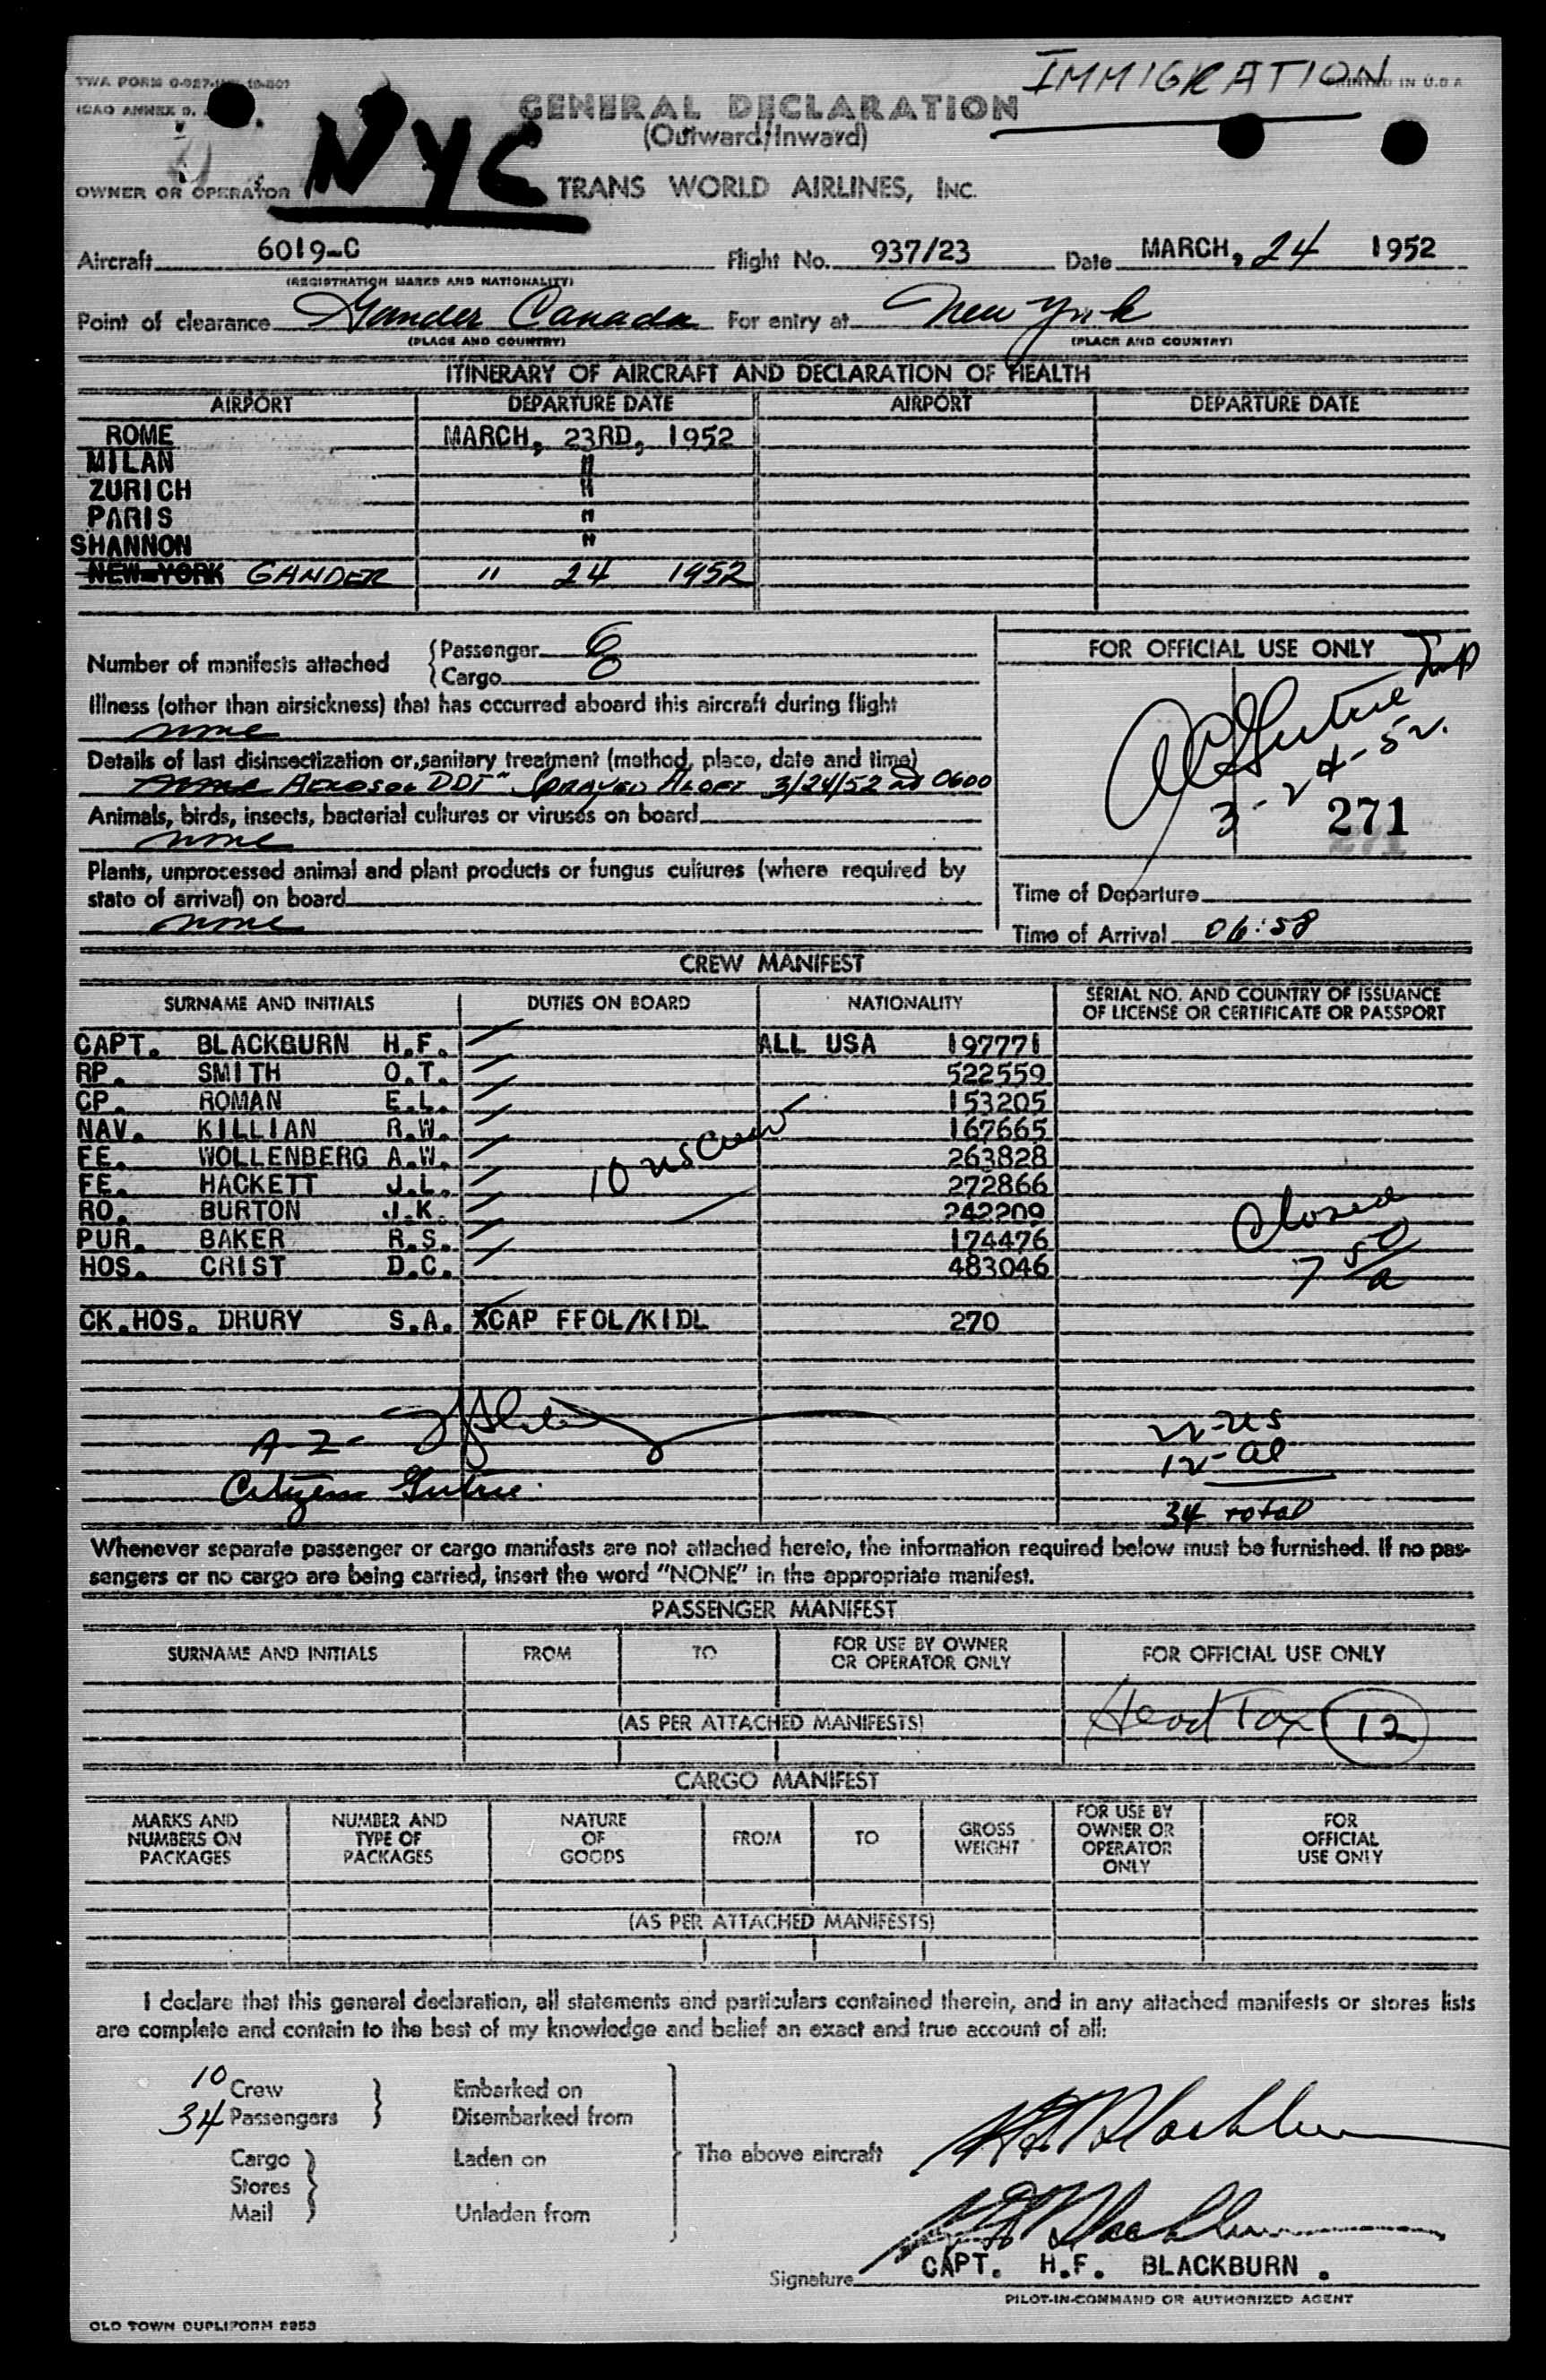 IMMIGRATION
TWA FORM
PRINTED IN U.S.A
ICAO ANNEX 9.
GENERAL DECLARATION
(Outward/Inward)
NYC
OWNER OR OPERATOR TRANS WORLD AIRLINES, INC.
Aircraft 6019-C Flight No. 937/23 Date MARCH, 24 1952
(REGISTRATION MARKS AND NATIONALITY)
Point of clearance Gander Canada For entry at New York
(PLACE AND COUNTRY) (PLACE AND COUNTRY)
ITINERARY OF AIRCRAFT AND DECLARATION OF HEALTH
AIRPORT DEPARTURE DATE AIRPORT DEPARTURE DATE
ROME MARCH, 23RD, 1952
MILAN "
ZURICH "
PARIS "
SHANNON "
NEW YORK GANDER " 24 1952
Number of manifests attached
Passenger
Cargo
FOR OFFICIAL USE ONLY
Illness (other than airsickness) that has occurred aboard this aircraft during flight
none
Details of last disinsectization or sanitary treatment (method, place, date and time)
none Aerosol DDT Sprayed Aloft 3/24/52 at 0600
3-24-52.
271
Animals, birds, insects, bacterial cultures or viruses on board
none
Plants, unprocessed animal and plant products or fungus cultures (where required by
state of arrival) on board
none
Time of Departure
Time of Arrival 06:58
CREW MANIFEST
SURNAME AND INITIALS DUTIES ON BOARD NATIONALITY SERIAL NO. AND COUNTRY OF ISSUANCE
OF LICENSE OR CERTIFICATE OR PASSPORT
CAPT. BLACKBURN H.F. ALL USA 197771
RP. SMITH O.T. 522559
CP. ROMAN E.L. 153205
NAV. KILLIAN R.W. 167665
FE. WOLLENBERG A.W. 263828
10 US Crew
FE. HACKETT J.L. 272866
RO. BURTON J.K. 242209
Closed
PUR. BAKER R.S. 174476
HOS. CRIST D.C. 483046
7 50/a
CK.HOS. DRURY S.A. XCAP FFOL/KIDL 270
A-2-
22-US
12-al
Citizens Gutrie
34 total
Whenever separate passenger or cargo manifests are not attached hereto, the information required below must be furnished. If no pas-
sengers or no cargo are being carried, insert the word "NONE" in the appropriate manifest.
PASSENGER MANIFEST
SURNAME AND INITIALS FROM TO FOR USE BY OWNER
OR OPERATOR ONLY FOR OFFICIAL USE ONLY
(AS PER ATTACHED MANIFESTS) Head Tax 12
CARGO MANIFEST
MARKS AND
NUMBERS ON
PACKAGES
NUMBER AND
TYPE OF
PACKAGES
NATURE
OF
GOODS
FROM
TO
GROSS
WEIGHT
FOR USE BY
OWNER OR
OPERATOR
ONLY
FOR
OFFICIAL
USE ONLY
(AS PER ATTACHED MANIFESTS)
I declare that this general declaration, all statements and particulars contained therein, and in any attached manifests or stores lists
are complete and contain to the best of my knowledge and belief an exact and true account of all:
10 Crew Embarked on
34 Passengers Disembarked from
Cargo Laden on The above aircraft H F Blackburn
Stores
Mail Unladen from
H F Blackburn
Signature CAPT. H.F. BLACKBURN .
PILOT-IN-COMMAND OR AUTHORIZED AGENT
OLD TOWN DUPLIFORM